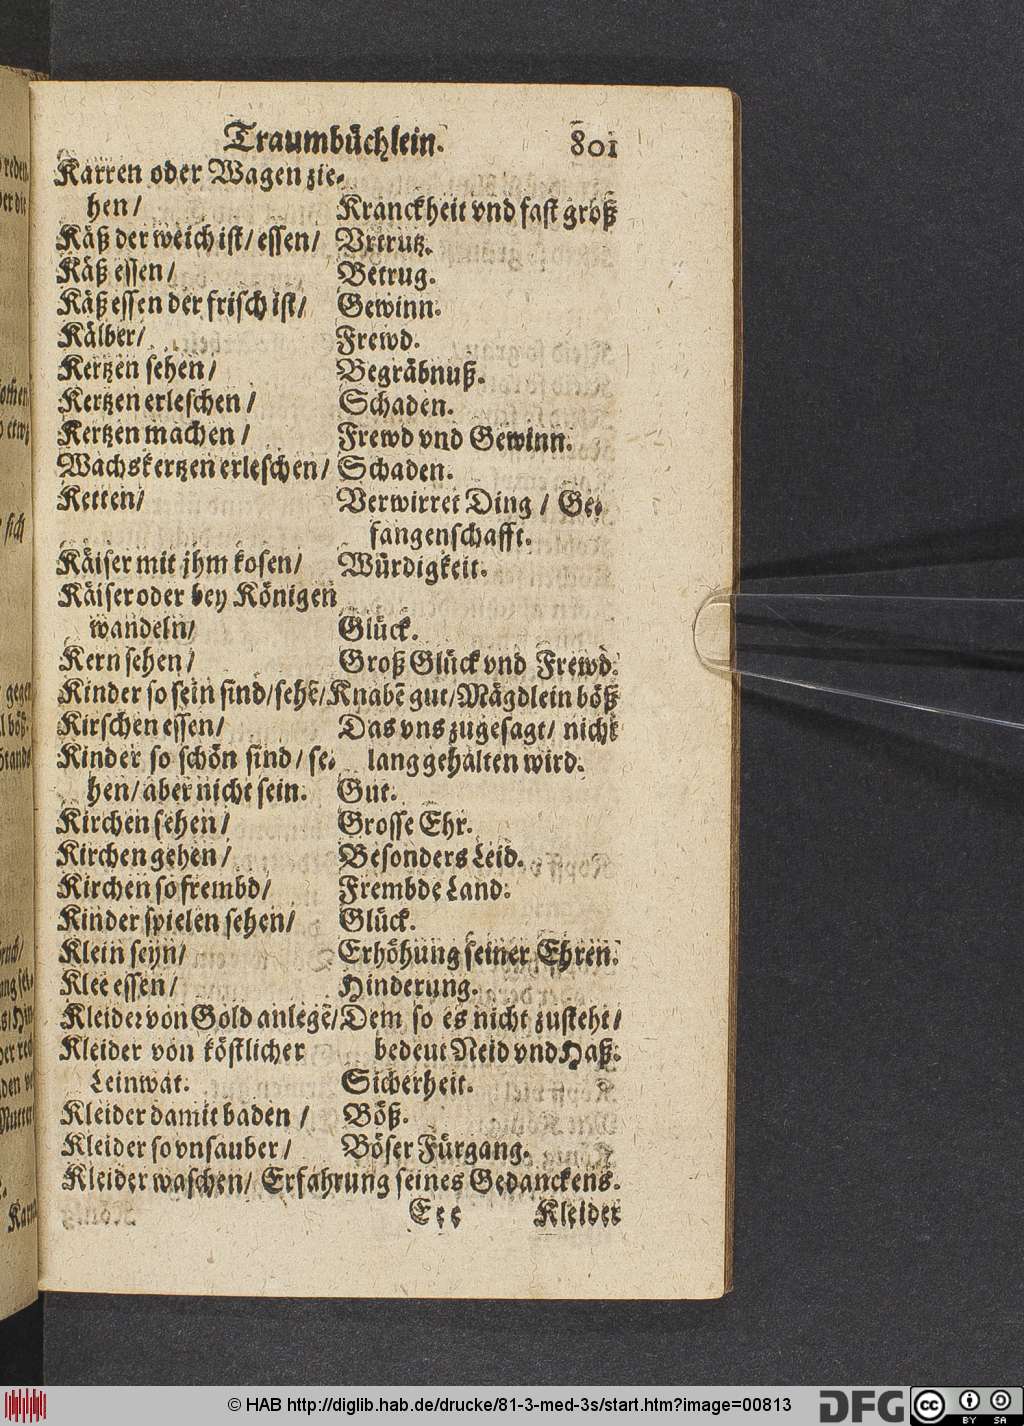 Traumbüchlein. 801
Karren oder Wagen zie-
hen/ Kranckheit vnd fast groß
Käß der weich ist/ essen/ Vrtrutz.
Käß essen/ Betrug.
Käß essen der frisch ist/ Gewinn.
Kälber/ Frewd.
Kertzen sehen/ Begräbnuß.
Kertzen erleschen/ Schaden.
Kertzen machen/ Frewd vnd Gewinn.
Wachskertzen erleschen/ Schaden.
Ketten/ Verwirret Ding/ Ge-
fangenschafft.
Käiser mit jhm kosen/ Würdigkeit.
Käiser oder bey Königen
wandeln/ Glück.
Kern sehen/ Groß Glück vnd Frewd.
Kinder so sein sind/ sehē/ Knabē gut/ Mägdlein böß
Kirschen essen/ Das vns zugesagt/ nicht
Kinder so schön sind/ se- lang gehalten wird.
hen/ aber nicht sein. Gut.
Kirchen sehen/ Grosse Ehr.
Kirchen gehen/ Besonders Leid.
Kirchen so frembd/ Frembde Land.
Kinder spielen sehen/ Glück.
Klein seyn/ Erhöhung seiner Ehren.
Klee essen/ Hinderung.
Kleider von Gold anlegē/ Dem so es nicht zusteht/
Kleider von köstlicher bedeut Neid vnd Haß.
Leinwat. Sicherheit.
Kleider damit baden/ Böß.
Kleider so vnsauber/ Böser Fürgang.
Kleider waschen/ Erfahrung seines Gedanckens.
Eee Kleider
© HAB http://diglib.hab.de/drucke/81-3-med-3s/start.htm?image=00813
DFG
cc BY SA